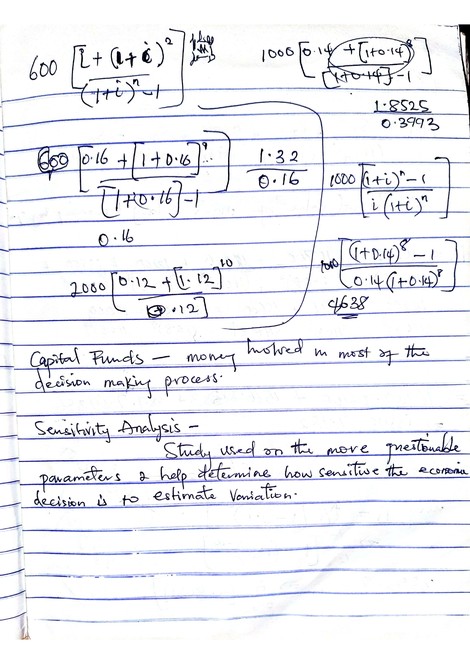 600 [i + (1+i)^2 / (1+i)^n - 1]
1000 [0.14 + [1+0.14]^8 / [1+0.14] - 1]
1.8525 / 0.3993
600 [0.16 + [1+0.16]^9... / [1+0.16] - 1]
1.32 / 0.16
0.16
1000 [(1+i)^n - 1 / i(1+i)^n]
1000 [(1+0.14)^8 - 1 / 0.14(1+0.14)^8]
4638
2000 [0.12 + [1.12]^10 / 0.12]
Capital Funds — money involved in most of the
decision making process.
Sensitivity Analysis —
Study used on the more questionable
parameters 2 help determine how sensitive the economic
decision is to estimate variation.